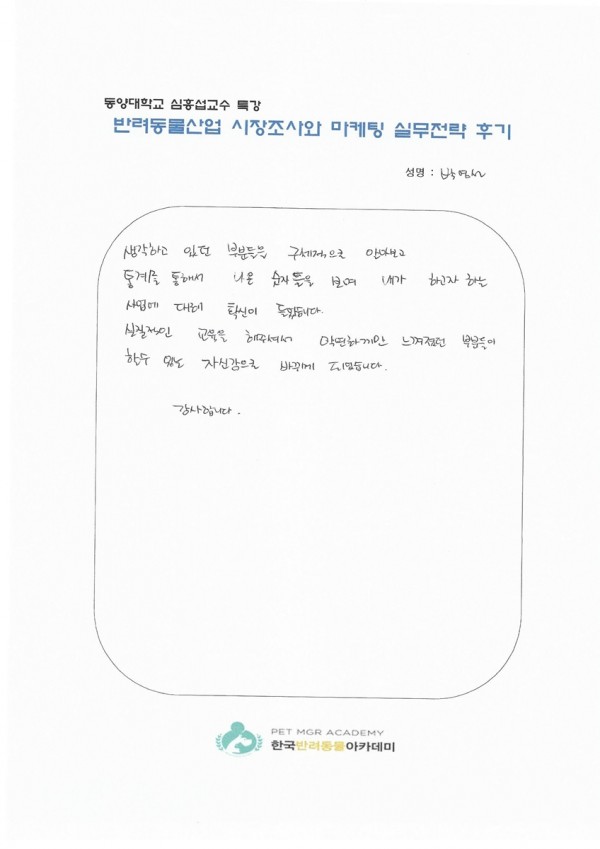 동양대학교 심홍섭교수 특강
반려동물산업 시장조사와 마케팅 실무전략 후기
성명 : 박영선
생각하고 있던 부분들을 구체적으로 알아보고
통계를 통해서 나온 숫자들을 보며 내가 하고자 하는
사업에 대해 확신이 들었습니다.
실질적인 교육을 해주셔서 막연하게만 느껴졌던 부분들이
할수 있는 자신감으로 바뀌게 되었습니다.
감사합니다.
PET MGR ACADEMY
한국반려동물아카데미